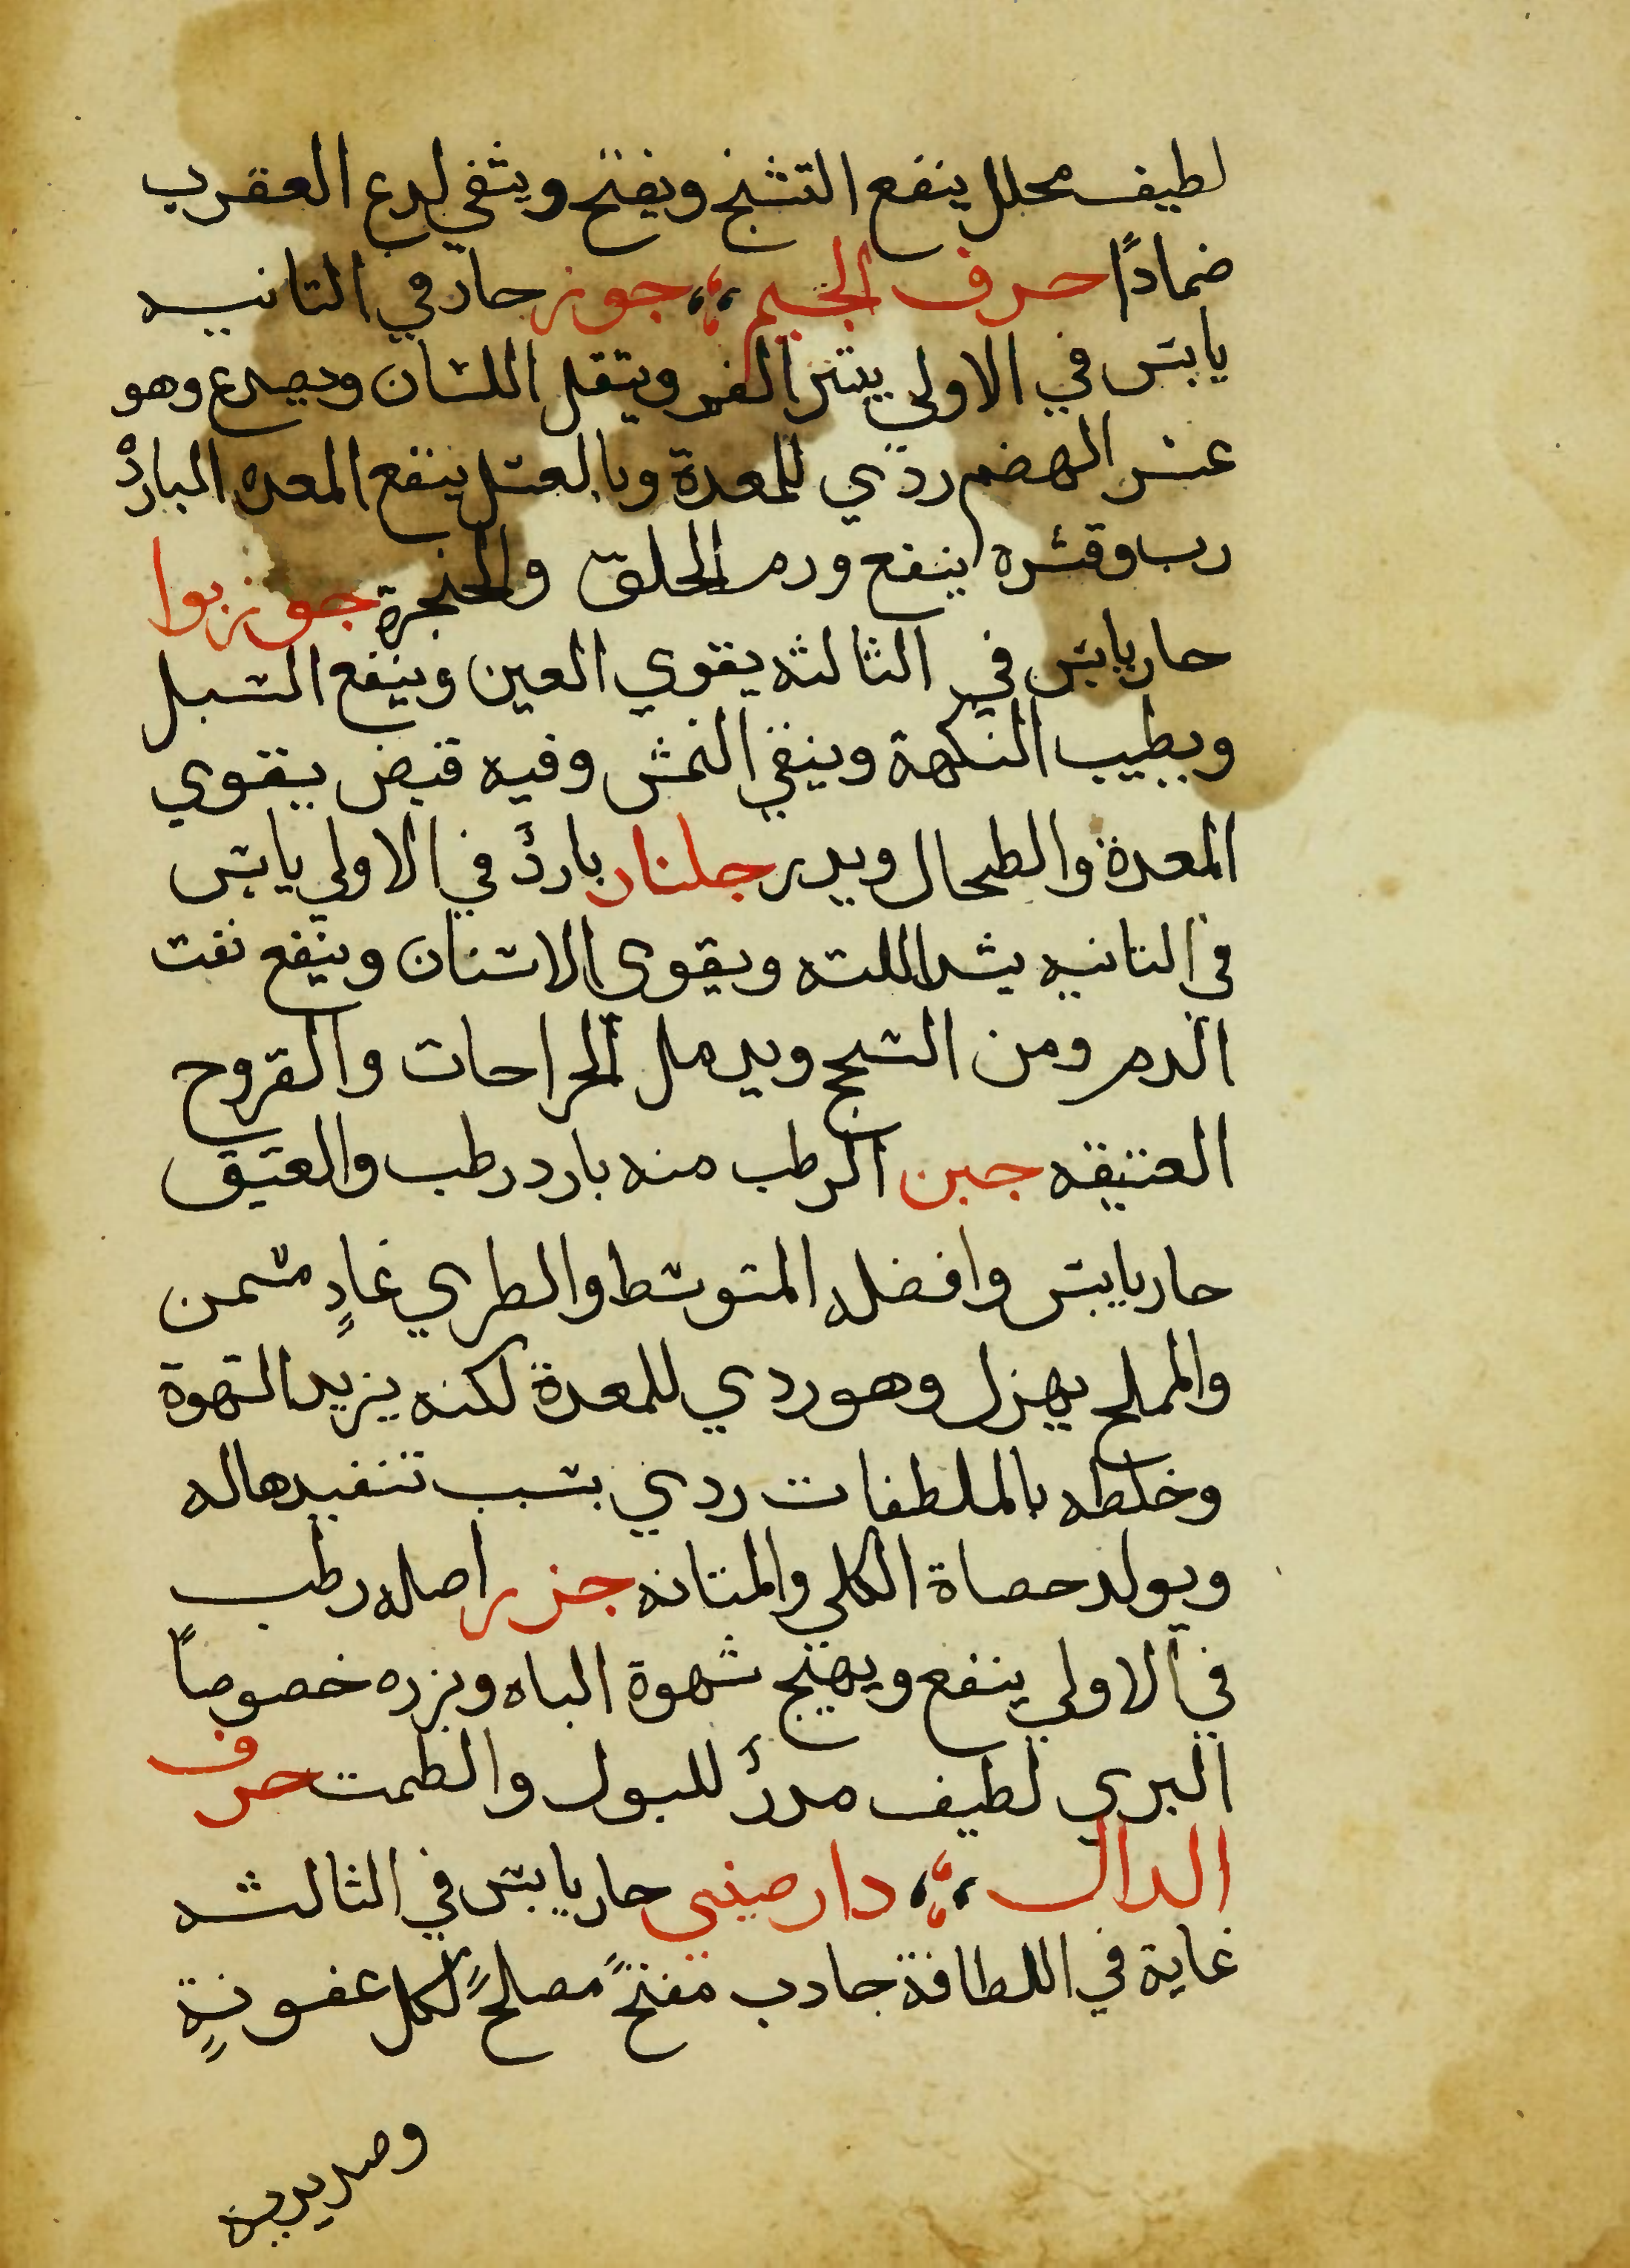 لطيف محلل ينفع التشنج ويفتح ويشفي لدع العقرب
ضمادًا حرف الجيم جوز حار في التانيه
يابس في الاولي يبثر الفم ويثقل اللسان ويصدع وهو
عسر الهضم ردي للمعدة وبالعسل ينفع المعده البارد
رب وقشره ينفع ورم الحلق والحنجرة جوز بوا
حار يابس في الثالثه يقوي العين وينفع السبل
ويطيب النكهة وينقي النمش وفيه قبض يقوي
المعدة والطحال ويدر جلنار بارد في الاولي يابس
في التانيه يشد اللته ويقوي الاسنان وينفع نفت
الدم ومن السحج ويدمل الجراحات والقروح
العتيقه جبن الرطب منه بارد رطب والعتيق
حار يابس وافضله المتوسط والطري غادٍ مسمن
والمملح يهزل وهو ردي للمعدة لكنه يزيد الشهوة
وخلطه بالملطفات ردي بسبب تنفيدها له
ويولد حصاة الكلي والمتانه جزر اصله رطب
في الاولي ينفع ويهيج شهوة الباه وبزره خصوصاً
البري لطيف مدر للبول والطمت حرف
الدال دار صيني حار يابس في الثالثه
غاية في اللطافة جادب مفتح مصلح لكل عفونةٍ
وصديدية